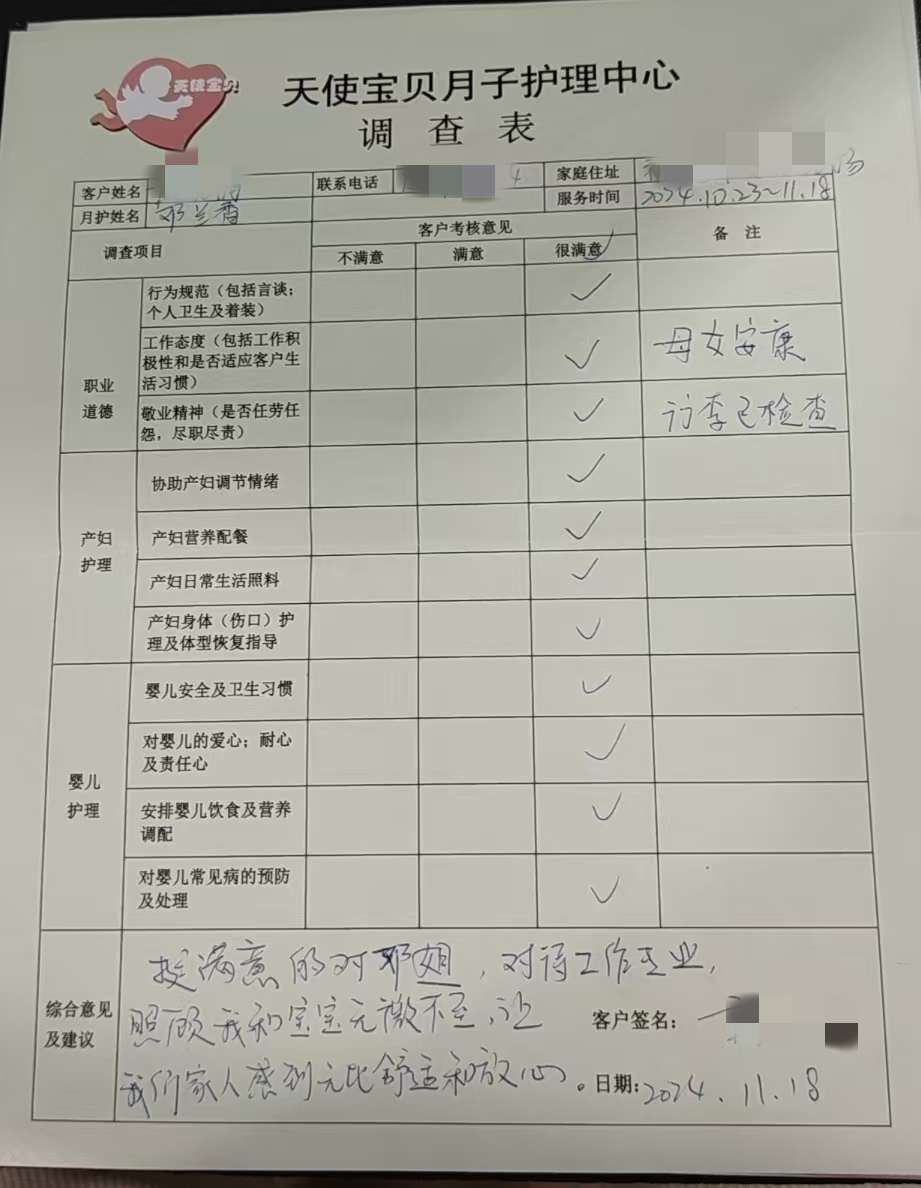 天使宝贝
天使宝贝月子护理中心
调查表
客户姓名 联系电话 家庭住址
月护姓名 邓兰香 服务时间 2024.10.23~11.18
调查项目 客户考核意见 备注
不满意 满意 很满意
职业
道德
行为规范（包括言谈；
个人卫生及着装）
工作态度（包括工作积
极性和是否适应客户生
活习惯）
母女安康
敬业精神（是否任劳任
怨，尽职尽责）
已检查
产妇
护理
协助产妇调节情绪
产妇营养配餐
产妇日常生活照料
产妇身体（伤口）护
理及体型恢复指导
婴儿
护理
婴儿安全及卫生习惯
对婴儿的爱心；耐心
及责任心
安排婴儿饮食及营养
调配
对婴儿常见病的预防
及处理
综合意见
及建议
挺满意的对邓姐，对待工作专业，
照顾我和宝宝无微不至，让
我们家人感到无比舒适和放心。
客户签名：
日期：2024.11.18